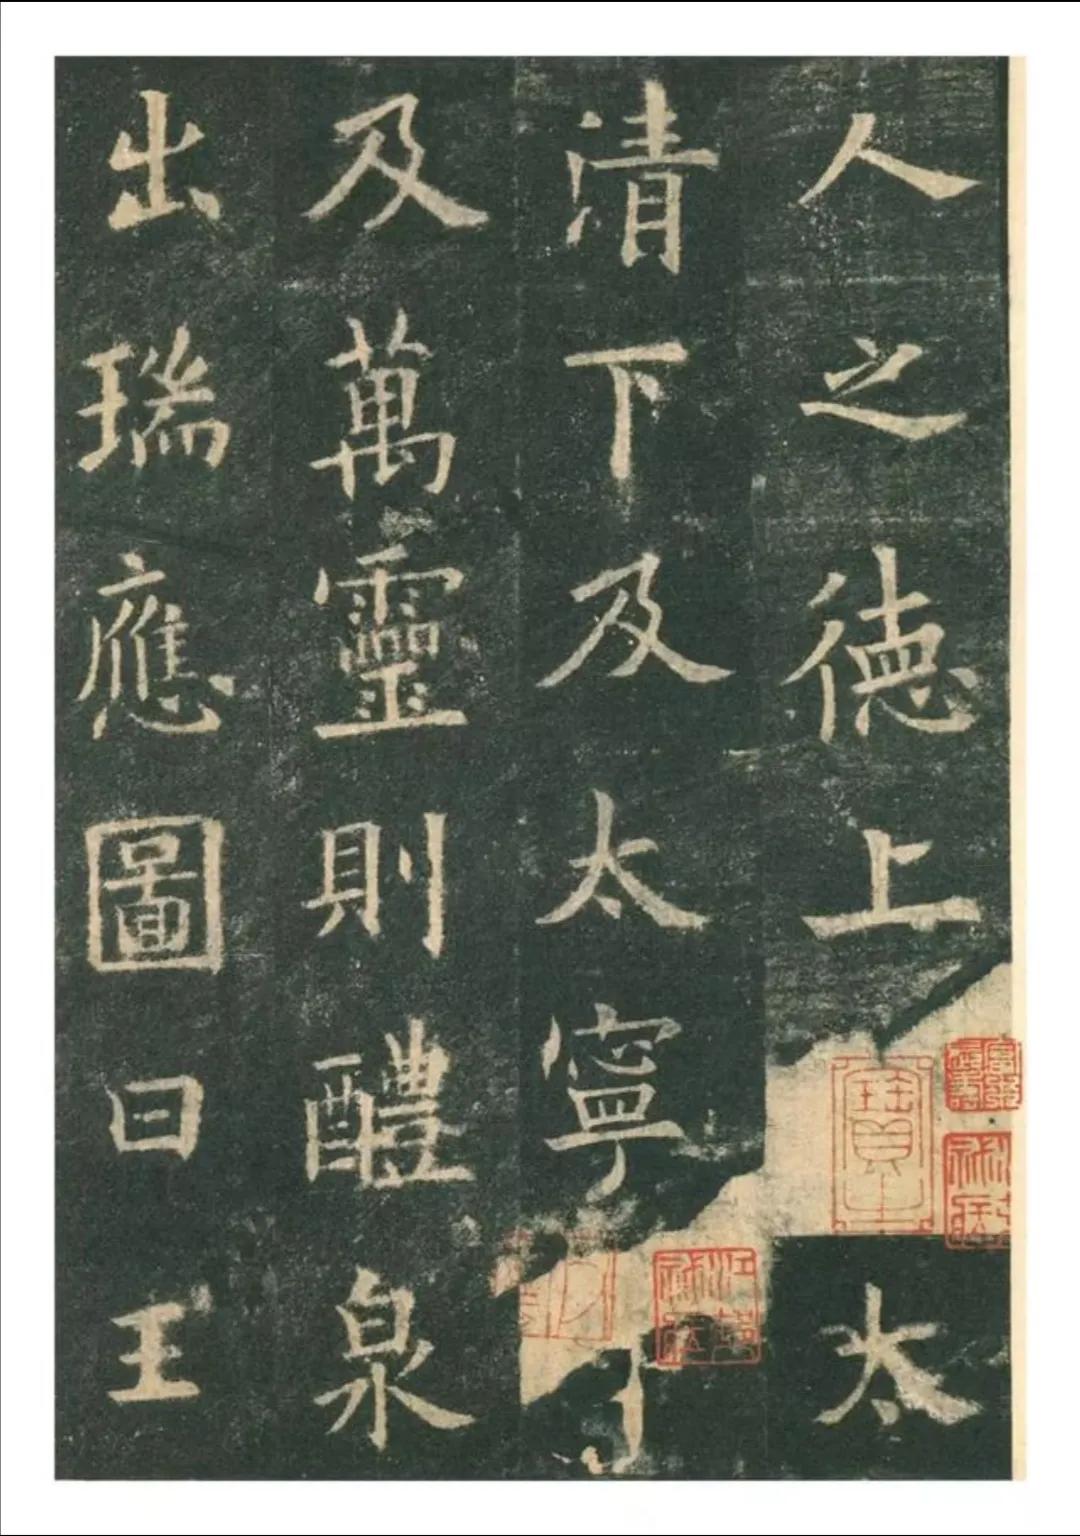 人之德上太
清下及太寧
及萬靈則醴泉
出瑞應圖曰王